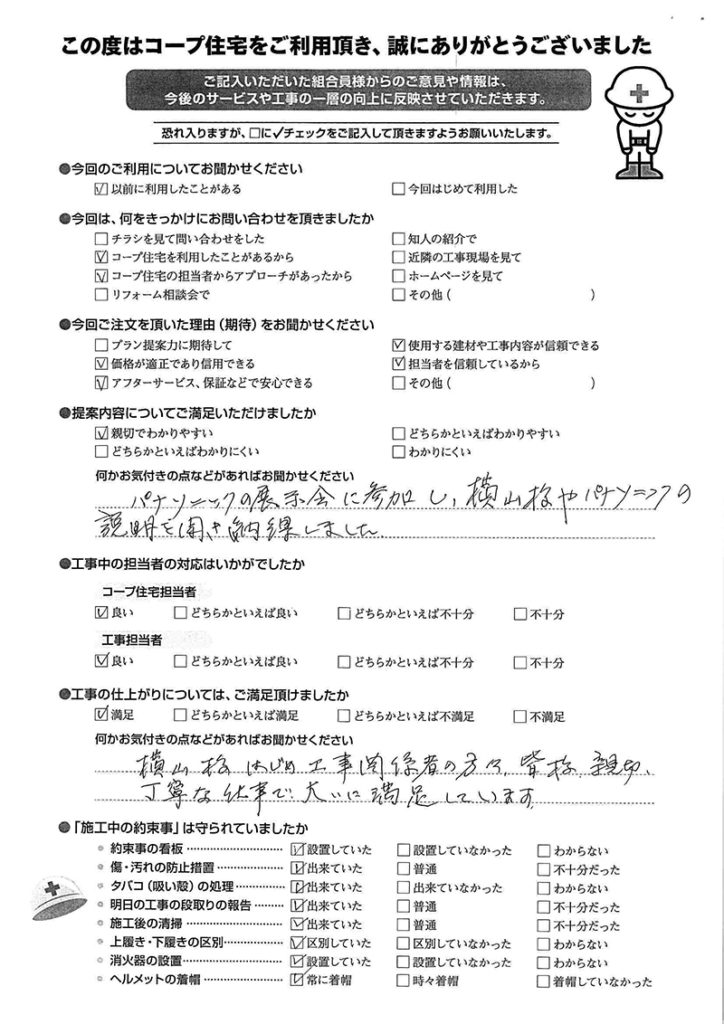 この度はコープ住宅をご利用頂き、誠にありがとうございました
ご記入いただいた組合員様からのご意見や情報は、
今後のサービスや工事の一層の向上に反映させていただきます。
恐れ入りますが、□に✓チェックをご記入して頂きますようお願いいたします。
●今回のご利用についてお聞かせください
☑以前に利用したことがある □今回はじめて利用した
●今回は、何をきっかけにお問い合わせを頂きましたか
□チラシを見て問い合わせをした □知人の紹介で
☑コープ住宅を利用したことがあるから □近隣の工事現場を見て
☑コープ住宅の担当者からアプローチがあったから □ホームページを見て
□リフォーム相談会で □その他( )
●今回ご注文を頂いた理由(期待)をお聞かせください
□プラン提案力に期待して ☑使用する建材や工事内容が信頼できる
☑価格が適正であり信用できる ☑担当者を信頼しているから
☑アフターサービス、保証などで安心できる □その他( )
●提案内容についてご満足いただけましたか
☑親切でわかりやすい □どちらかといえばわかりやすい
□どちらかといえばわかりにくい □わかりにくい
何かお気付きの点などがあればお聞かせください
パナソニックの展示会に参加し、横山様やパナソニックの
説明を聞き納得しました
●工事中の担当者の対応はいかがでしたか
コープ住宅担当者
☑良い □どちらかといえば良い □どちらかといえば不十分 □不十分
工事担当者
☑良い □どちらかといえば良い □どちらかといえば不十分 □不十分
●工事の仕上がりについては、ご満足頂けましたか
☑満足 □どちらかといえば満足 □どちらかといえば不満足 □不満足
何かお気付きの点などがあればお聞かせください
横山様はじめ工事関係者の方々、皆様、親切、
丁寧な仕事で大いに満足しています
●「施工中の約束事」は守られていましたか
約束事の看板 ☑設置していた □設置していなかった □わからない
傷・汚れの防止措置 ☑出来ていた □普通 □不十分だった
タバコ(吸い殻)の処理 ☑出来ていた □出来ていなかった □わからない
明日の工事の段取りの報告 ☑出来ていた □普通 □不十分だった
施工後の清掃 ☑出来ていた □普通 □不十分だった
上履き・下履きの区別 ☑区別していた □区別していなかった □わからない
消火器の設置 ☑設置していた □設置していなかった □わからない
ヘルメットの着帽 ☑常に着帽 □時々着帽 □着帽していなかった